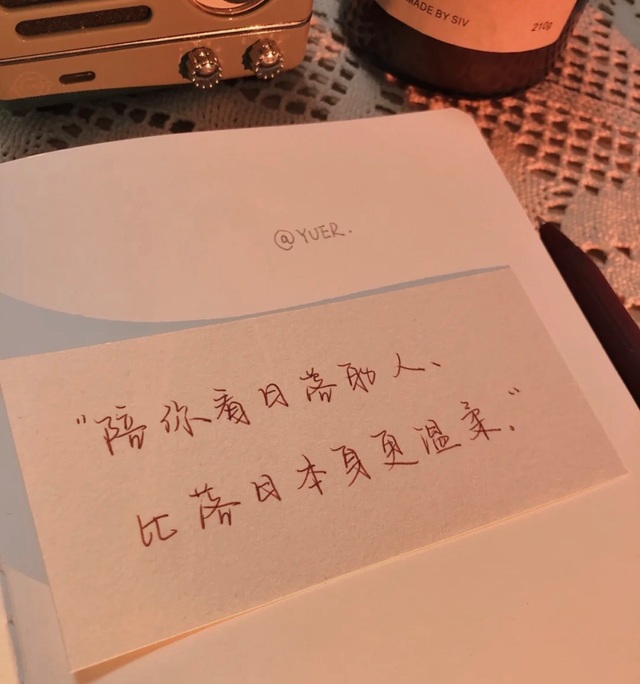 MADE BY SIV
210g
@YUER.
"陪你看日落的人、
比落日本身更温柔."